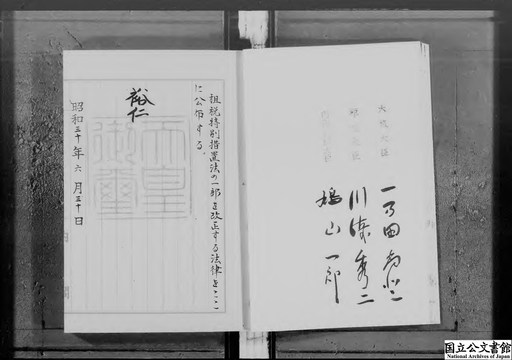 租税特別措置法の一部を改正する法律をここ
に公布する。
裕仁
天皇
御璽
昭和三十年六月三十日
大蔵大臣
一万田尚登
川崎秀二
鳩山一郎
国立公文書館
National Archives of Japan